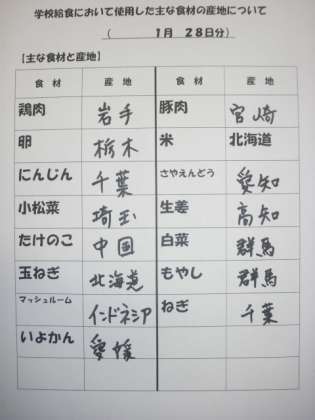 学校給食において使用した主な食材の産地について
( 1月 28日分)
【主な食材と産地】
食 材 産 地 食 材 産 地
鶏肉 岩手 豚肉 宮崎
卵 栃木 米 北海道
にんじん 千葉 さやえんどう 愛知
小松菜 埼玉 生姜 高知
たけのこ 中国 白菜 群馬
玉ねぎ 北海道 もやし 群馬
マッシュルーム インドネシア ねぎ 千葉
いよかん 愛媛